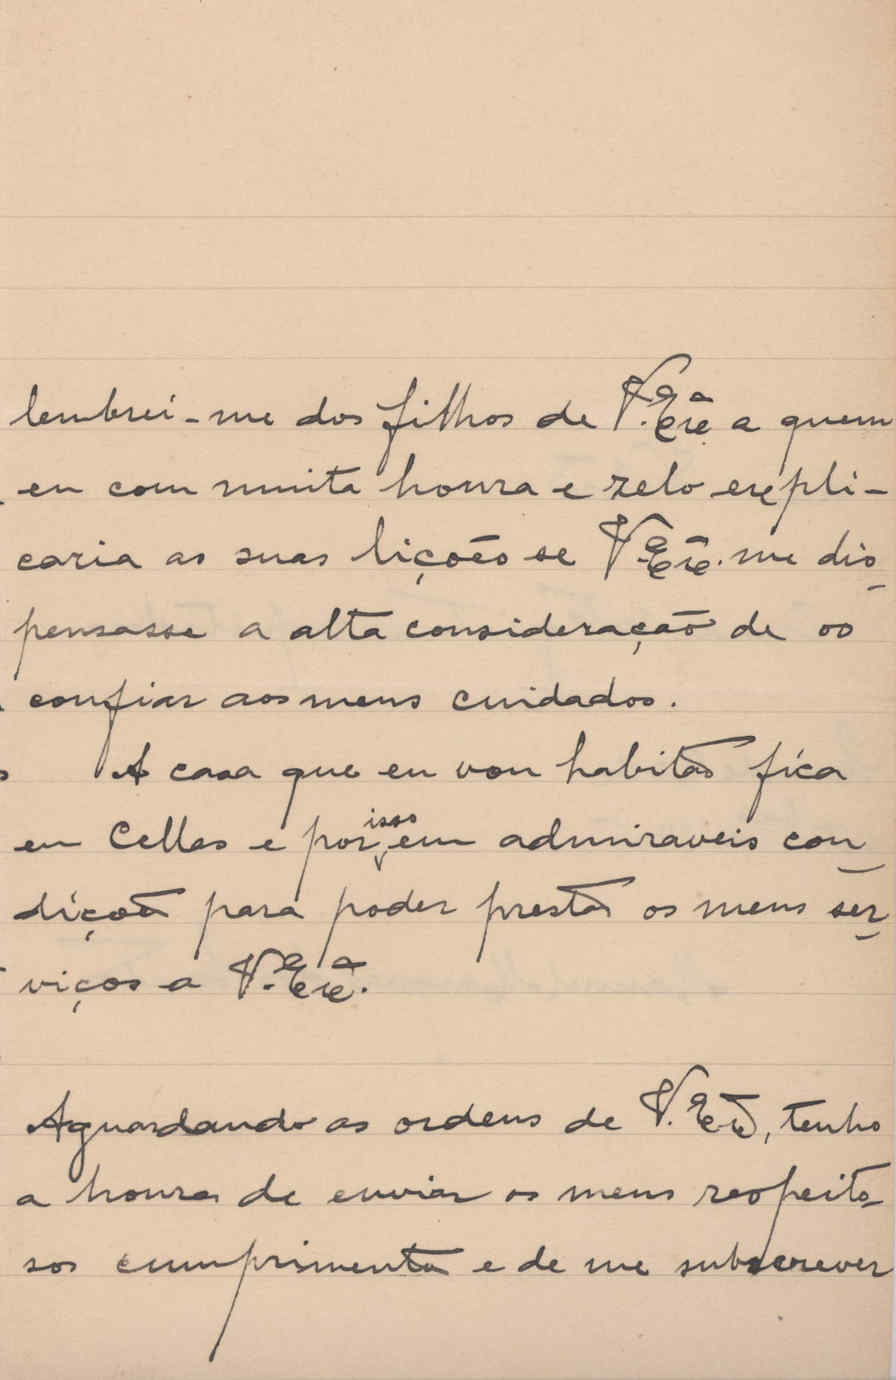 lembrei-me dos filhos de V. Exª a quem
eu com muita honra e zelo expli-
caria as suas lições se V. Exª. me dis
pensasse a alta consideração de os
confiar aos meus cuidados.
A casa que eu vou habitar fica
em Cellas e por isso em admiraveis con
dições para poder prestar os meus ser
viços a V. Exª.
Aguardando as ordens de V. Exª, tenho
a honra de enviar os meus respeito
sos cumprimentos e de me subscrever